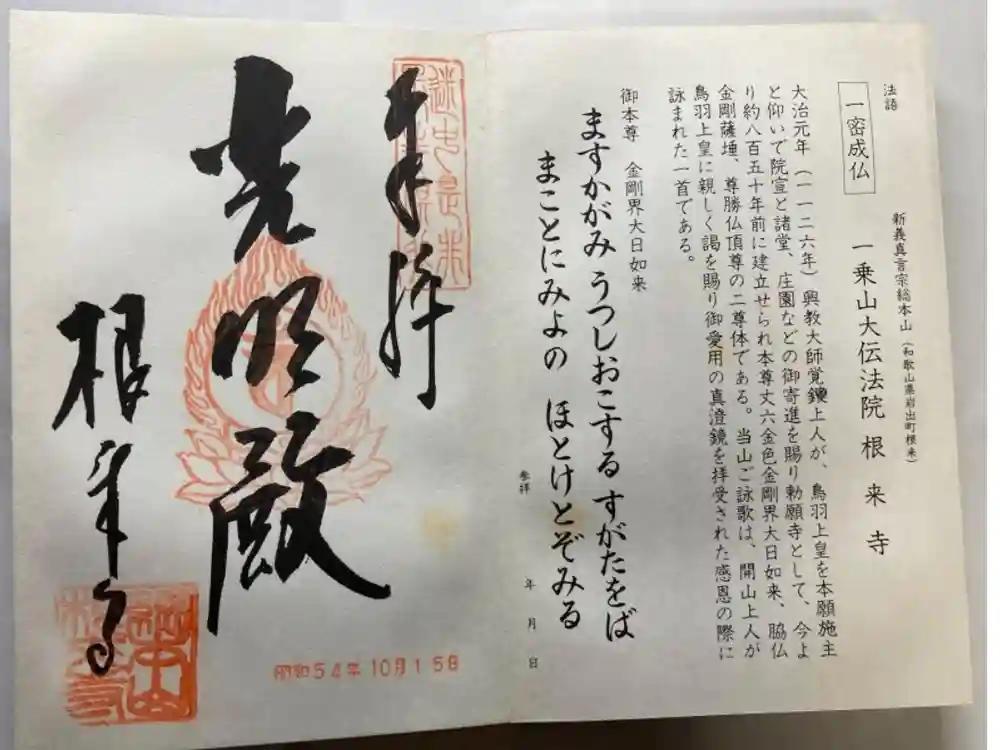 法語
一密成仏
新義真言宗総本山（和歌山県岩出町根来）
一乗山大伝法院 根来寺
大治元年（一一二六年）興教大師覚鑁上人が、鳥羽上皇を本願施主
と仰いで院宣と諸堂、庄園などの御寄進を賜り勅願寺として、今よ
り約八百五十年前に建立せられ本尊丈六金色金剛界大日如来、脇仏
金剛薩埵、尊勝仏頂尊の二尊体である。当山ご詠歌は、開山上人が
鳥羽上皇に親しく謁を賜り御愛用の真澄鏡を拝受された感恩の際に
詠まれた一首である。
御本尊 金剛界大日如来
ますかがみ うつしおこする すがたをば
まことにみよの ほとけとぞみる
参拝 年 月 日
奉拝
光明殿
根来寺
昭和54年10月15日